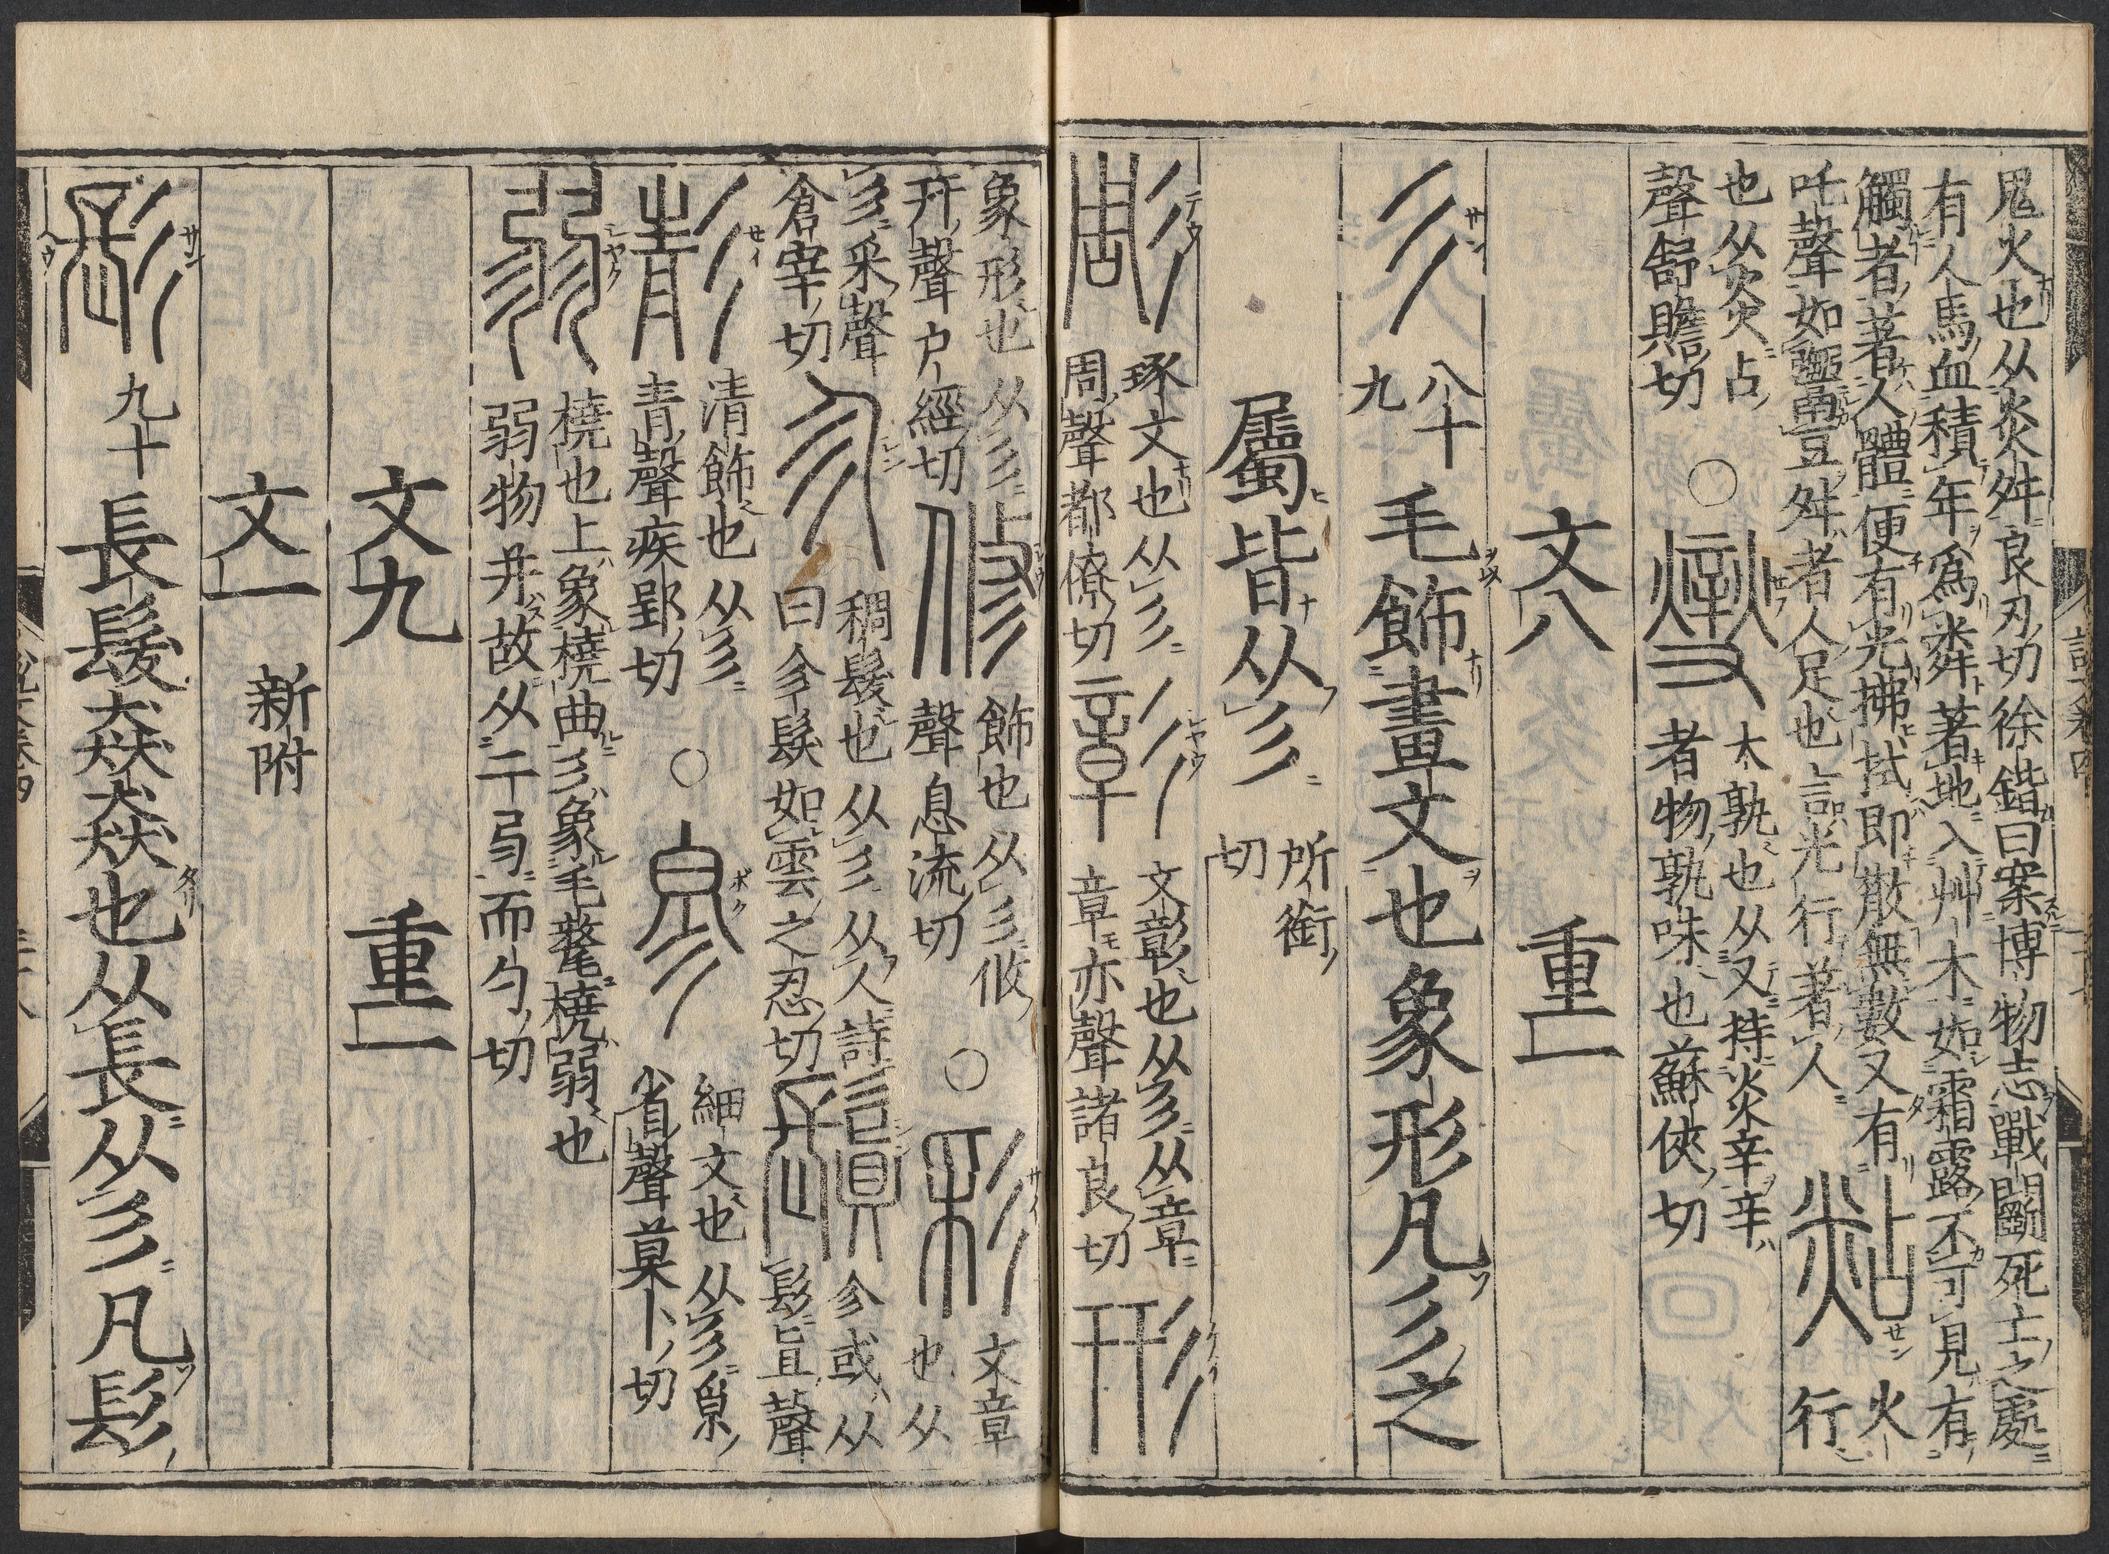 鬼火也从炎舛良刃切徐鍇曰案博物志戰鬬死亡之處
有人馬血積年爲粦著地入艸木如霜露不可見有
觸者著人體便有光拂拭即散無數又有
吒聲如鬻豆舛者人足也言光行著人
㷠火行
也从炎占
聲舒贍切
○燮
大孰也从又持炎辛辛
者物孰味也蘇俠切
文八 重一
彡 八十九 毛飾畫文也象形凡彡之
屬皆从彡 所銜切
彫
琢文也从彡
周聲都僚切
彰
文彰也从彡从章
章亦聲諸良切
形
象形也从彡
幵聲戶經切
修
飾也从彡攸
聲息流切
○彩
文章也从
彡采聲
倉宰切
㐱
稠髮也从彡从人詩
曰㐱髮如雲之忍切
鬒
㐱或从
髟眞聲
彰
清飾也从彡
青聲疾郢切
○
細文也从彡𡭴
省聲莫卜切
弱
橈也上象橈曲彡象毛氂橈弱也
弱物并故从二㢱而勺切
文九 重一
文一 新附
髟 九十 長髮猋猋也从長从彡凡髟